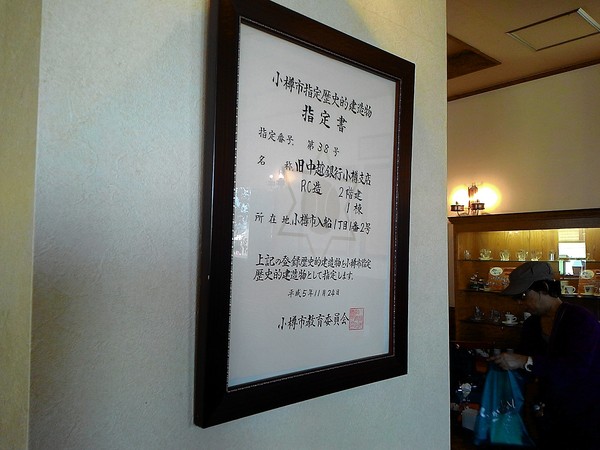 小樽市指定歴史的建造物
指定書
指定番号 第38号
名称 旧中越銀行小樽支店
RC造 2階建
1棟
所在地 小樽市入船1丁目1番2号
上記の登録歴史的建造物を小樽市指定
歴史的建造物として指定します。
平成5年11月24日
小樽市教育委員会